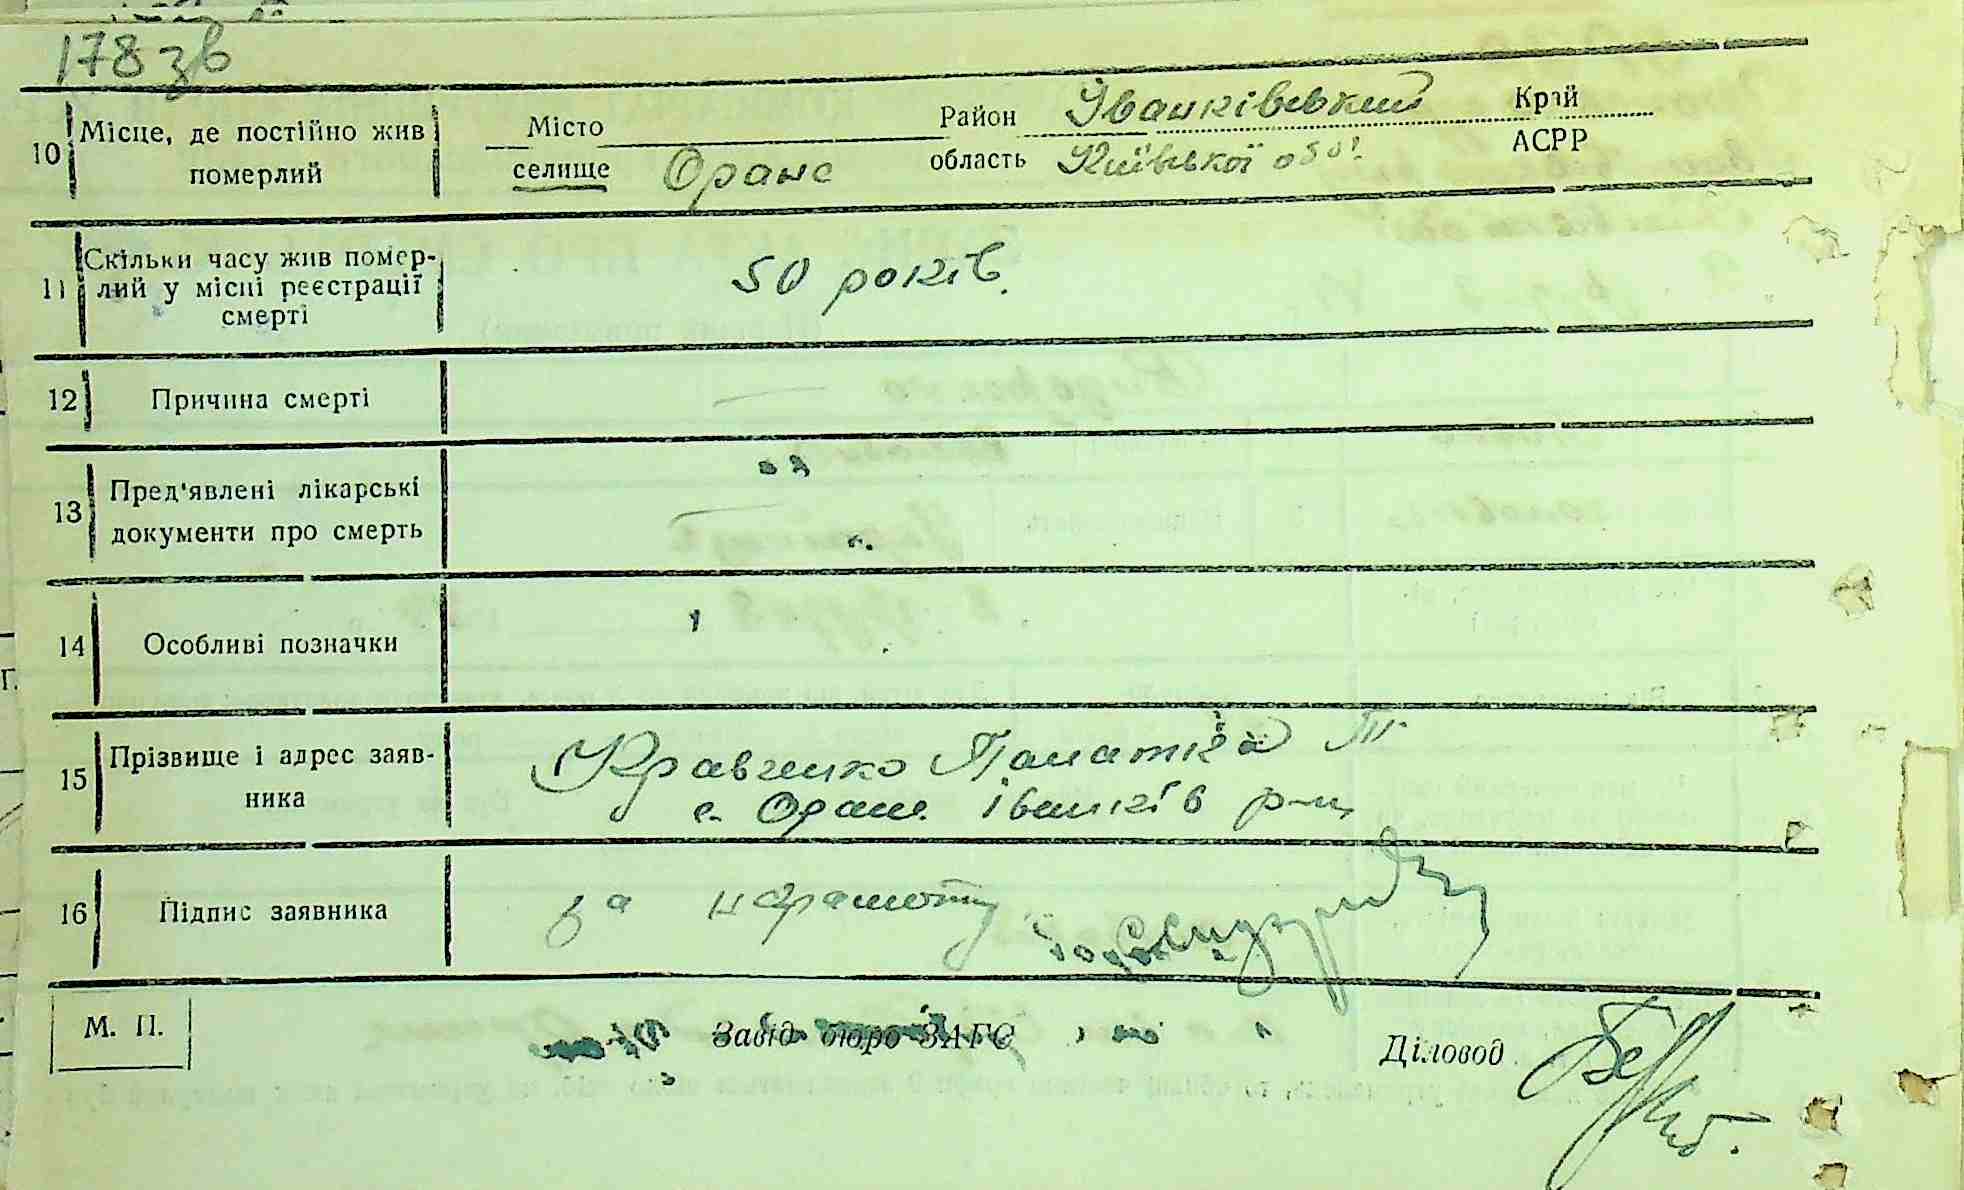 178 зв
10 Місце, де постійно жив померлий
Місто
селище Оране
Район Іванківський
область Київської обл.
Край
АСРР
11 Скільки часу жив помер-
лий у місці реєстрації
смерті
50 років.
12 Причина смерті —
13 Пред'явлені лікарські
документи про смерть —
14 Особливі позначки
15 Прізвище і адрес заяв-
ника
Кравченко Т
с. Оране Іванків р-ну
16 Підпис заявника
за неграмотну
М. П.
Завід. бюро ЗАГС
Діловод